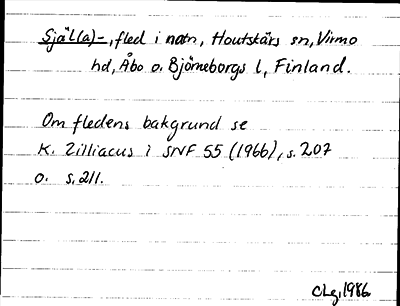 Själ(a)-, fled i natn, Houtskärs sn, Virmo
hd, Åbo o. Björneborgs l, Finland.
Om fledens bakgrund se
K. Zilliacus i SNF 55 (1966), s. 207
o. s. 211.
CLg, 1986